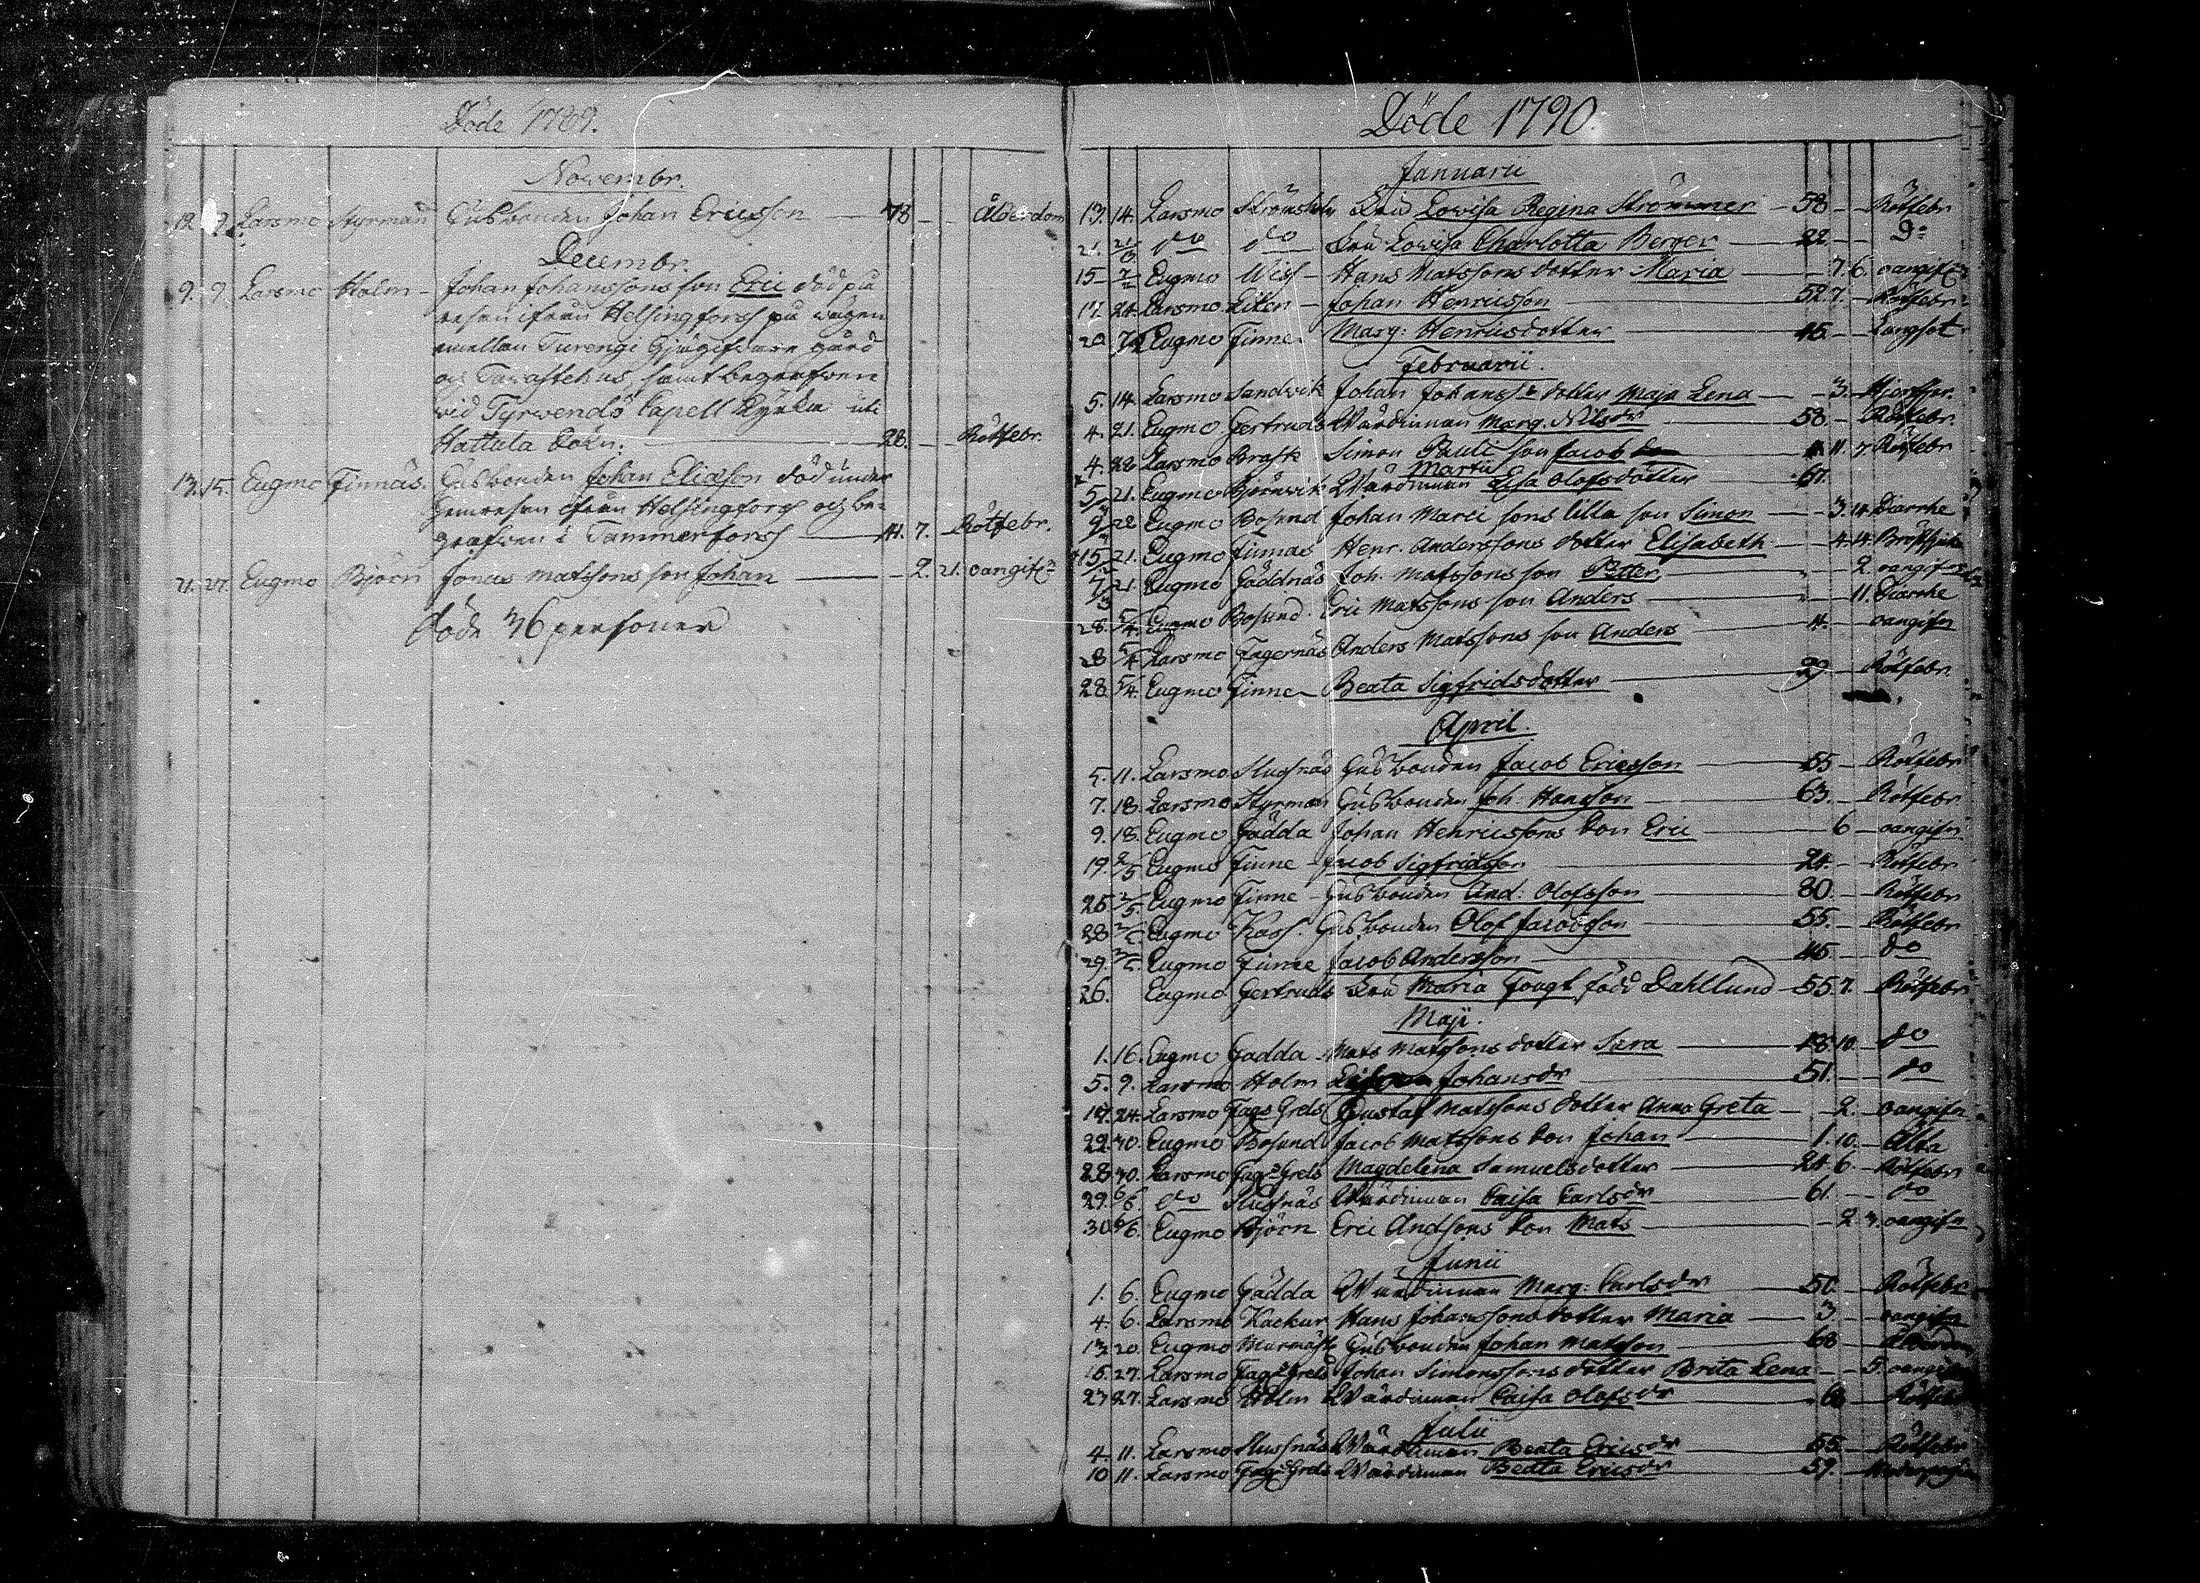 Döde 1789.
Novembr.
12. 9. Larsmo Styrman Husbonden Johan Ericsson — 78 – – Ålderdom
Decembr.
9. 9. Larsmo Holm – Johan Johanssons son Eric död på
resan ifrån Helsingfors på wägen
emellan Turengi Gjästgifware gård
och Tavastehus, samt begrafwen
wid Tyrwendö Capell Kyrka uti
Hattula Sokn. — 28. – Rötfebr.
13. 15. Eugmo Finnäs. Husbonden Johan Eliasson död under
hemresan ifrån Helsingfors och be-
grafwen i Tammerfors — 41. 7. – Rötfebr.
21. 27. Eugmo Björn Jonas Matssons son Johan — – 2. 21. oangifn
Döde 36 personer
Döde 1790.
Januarii
13. 14. Larsmo Frü Lowisa Regina Strömmer – 58 – – Rötfebr
21. do do Frü Lowisa Charlotta Berger — 22 – – Do
15 Eugmo Wist – Hans Matssons dotter Maria — – 7. 6. oangifn
17. 24. Larsmo Liten – Johan Henricsson — 52. 7. – Rötfebr
20. Eugmo Finne – Marg: Henricsdotter — 45. – Langsot
Februarii.
5. 14. Larsmo Sandvik Johan Johanss: dotter Maja Lena — – 3.
4. 21. Eugmo Gertruds Wärdinnan Marg. Nilsdr — 58. – Rötfebr.
4. 28 Larsmo Brask Simon Pauli son Jacob — 11. 7 Rötfebr
Martii
5 21. Eugmo Björnvik Wärdinnan Lisa Olofsdotter — 67.
9 28 Eugmo Bosund Johan Marci sons lilla son Simon — – 3. 14. Diarrhe
15 21. Eugmo Finnäs Henr. Anderssons dotter Elisabeth — – 4. 14. Bröstsjuka
7 21. Eugmo Gäddnäs Joh. Matssons son Petter — 2. oangifn
28. 5/4. Eugmo Bosund. Eric Matssons son Anders — 11. Diarrhe
28 5/4 Larsmo Fagernäs Anders Matssons son Anders — 4. – oangifn
28. 5/4. Eugmo Finne – Beata Sigfridsdotter — 29. – Rötfebr.
April.
5. 11. Larsmo Slussnäs Husbonden Jacob Ericsson — 55 – Rötfebr
7. 18. Larsmo Styrman Husbonden Joh: Hansson — 63. – Rötfebr
9. 18. Eugmo Gädda Johan Henricssons Son Eric — 6 – oangifn
19. 2/5 Eugmo Finne – Jacob Sigfridsson — 24. – Rötfebr
25. 2/5. Eugmo Finne – Husbonden And. Olofsson — 80. – Rötfebr
28 2/5. Eugmo Kass. Husbonden Olof Jacobsson — 55. – Rötfebr
29. 2/5. Eugmo Finne Jacob Andersson — 45. – do
26. Eugmo Gertruds Frü Maria Fougt född Dahllund – 55 7. – Rötfebr
Maji.
1. 16. Eugmo Gädda – Mats Matssons dotter Sara — 18 10. – do
5. 9. Larsmo Holm Johansdr — 51. – do
17. 24. Larsmo Fag: Grels Gustaf Matssons dotter Anna Greta — 2. – oangifn
22. 30. Eugmo Bosund Jacob Matssons Son Johan — 1. 10. – Älta
28 30. Larsmo Fag: Grels Magdelena Samuelsdotter — 24. 6. – Rötfebr
29. 6/6. do Slussnäs Wärdinnan Caisa Carlsdr — 61. – do
30. 6/6. Eugmo Björn Eric Andssons Son Mats — – 2. 3. oangifn
Junii
1. 6. Eugmo Gädda Wärdinnan Marg: Carlsdr — 50. – Rötfebr
4. 6. Larsmo Kackur Hans Johanssons dotter Maria — 3. – oangifn
13. 20. Eugmo Murmäst: Husbonden Johan Matsson — 68 – Ålderdom
16. 27. Larsmo Fag: Grels Johan Simonssons dotter Brita Lena — – 5. oangifn
23 27. Larsmo Holm Wärdinnan Caisa Olofsdr — – Rötfebr
Julii
4. 11. Larsmo Slussnäs Wärdinnan Beata Ericsdr — 55. – Rötfebr
10 11. Larsmo Fag: Grels Wärdinnan Beata Ericsdr — 59.